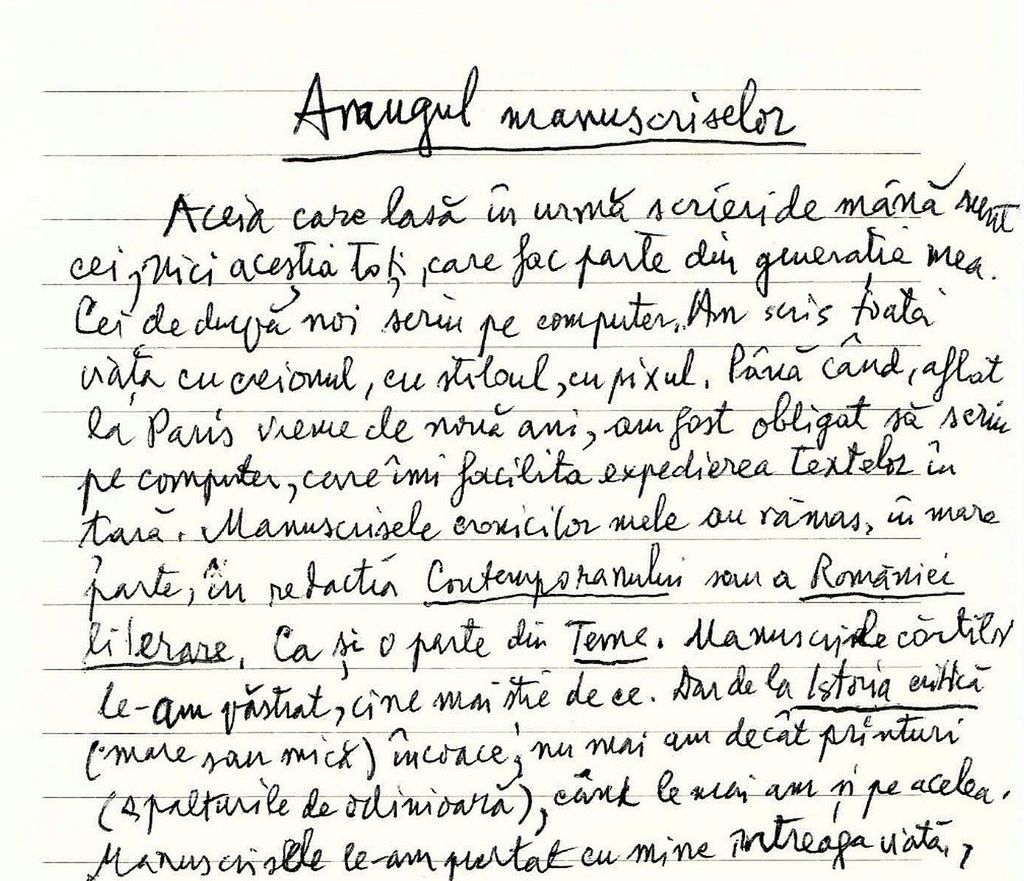 Amurgul manuscriselor
Aceia care lasă în urmă scrieri de mână sunt
cei, nici aceștia toți, care fac parte din generația mea.
Cei de după noi scriu pe computer. Am scris toată
viața cu creionul, cu stiloul, cu pixul. Până când, aflat
la Paris vreme de nouă ani, am fost obligat să scriu
pe computer, care îmi facilita expedierea textelor în
țară. Manuscrisele cronicilor mele au rămas, în mare
parte, în redacția Contemporanului sau a României
literare. Ca și o parte din Teme. Manuscrisele cărților
le-am păstrat, cine mai știe de ce. Dar de la Istoria critică
(mare sau mică) încoace, nu mai am decât printuri
(șpalturile de odinioară), când le mai am și pe acelea.
Manuscrisele le-am purtat cu mine întreaga viață,